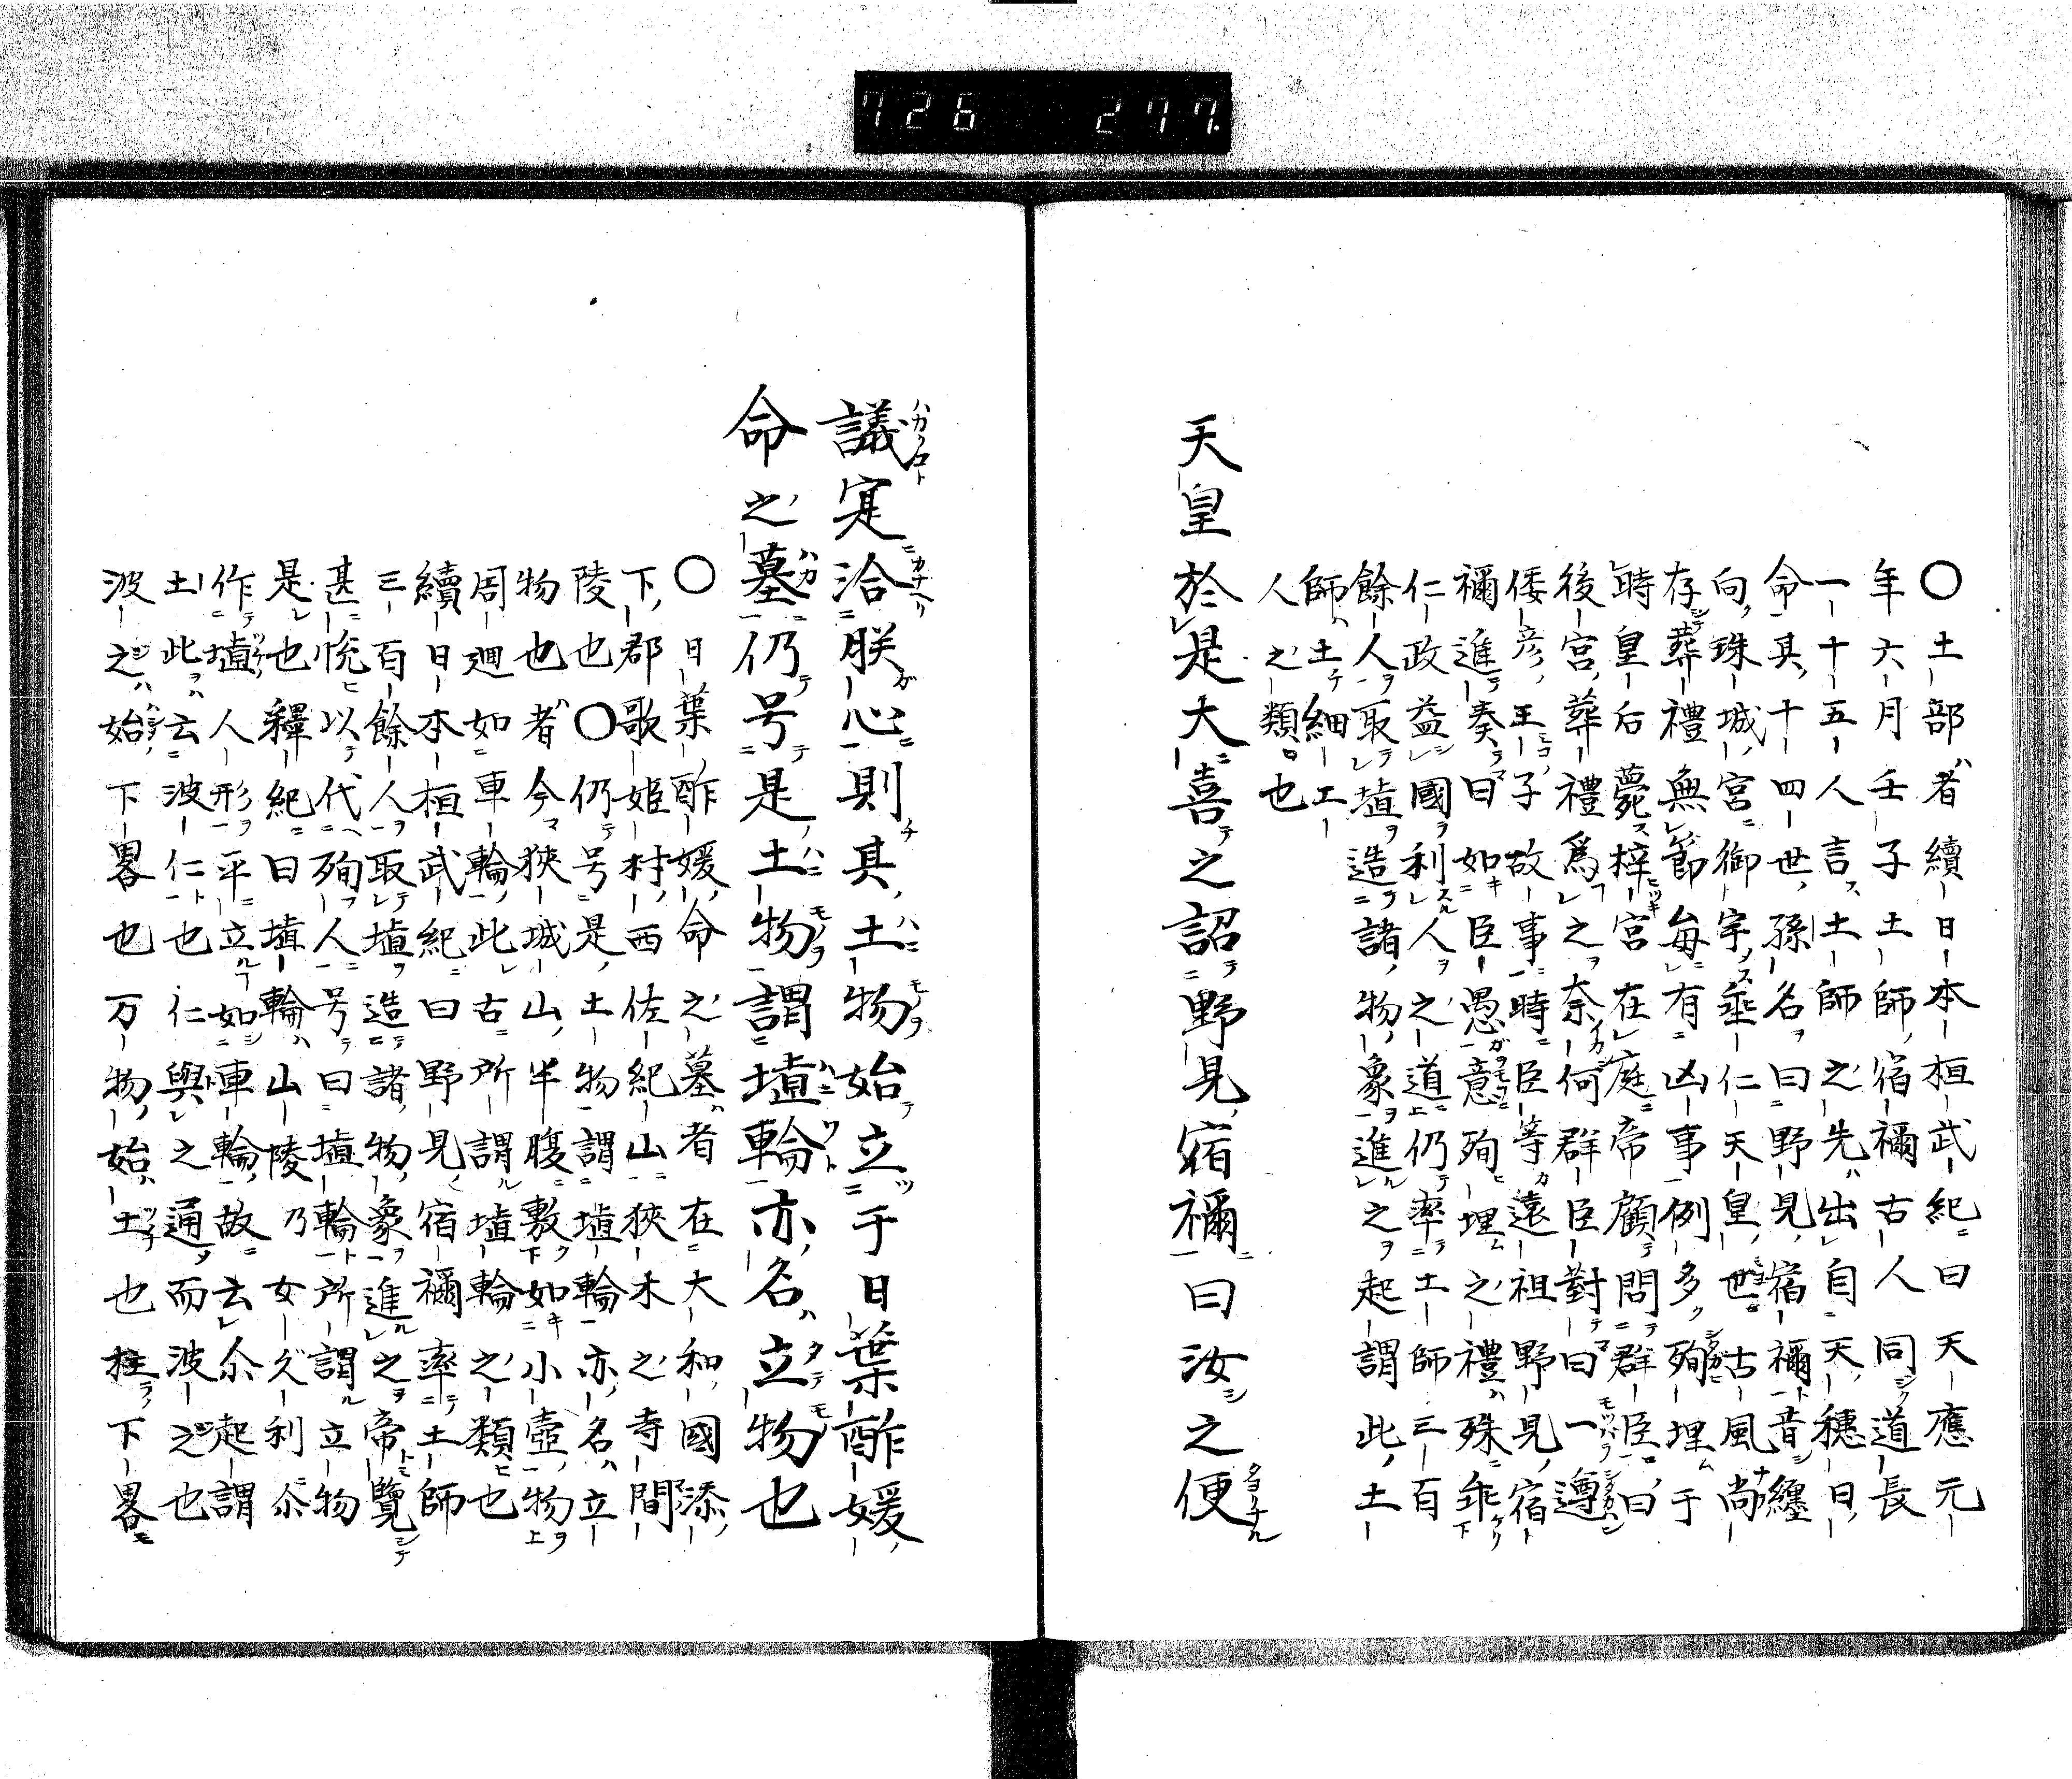 726 277.
〇土部者續日本桓武紀曰天應元
年六月壬子土師宿禰古人同道長
一十五人言土師之先出自天穗日
命其十四世孫名曰野見宿禰昔纏
向珠城宮御宇垂仁天皇世古風尚
存葬禮無節毎有凶事例多殉埋于
時皇后薨梓宮在庭帝顧問群臣曰
後宮葬禮爲之奈何群臣對曰一遵
倭彦王子故事時臣等遠祖野見宿
禰進奏曰如臣愚意殉埋之禮殊乖
仁政益國利人之道仍率土師三百
餘人取埴造諸物象進之起謂此土
師土細工
人之類也
天皇於是大喜之詔野見宿禰曰汝之便
議寔洽朕心則其土物始立于日葉酢媛
命之墓仍号是土物謂埴輪亦名立物也
〇日葉酢媛命之墓者在大和國添
下郡歌姫村西佐紀山狹木之寺間
陵也〇仍号是土物謂埴輪亦名立
物也者今狹城山半腹敷如小壺物
周廻如車輪此古所謂埴輪之類也
續日本桓武紀曰野見宿禰率土師
三百餘人取埴造諸物象進之帝覽
甚悦以代殉人号曰埴輪所謂立物
是也釋紀曰埴輪山陵乃女久利尒
作埴人形平立如車輪故云尒起謂
土此云波仁也仁與之通而波之也
波之始下畧也万物始土也柱下畧